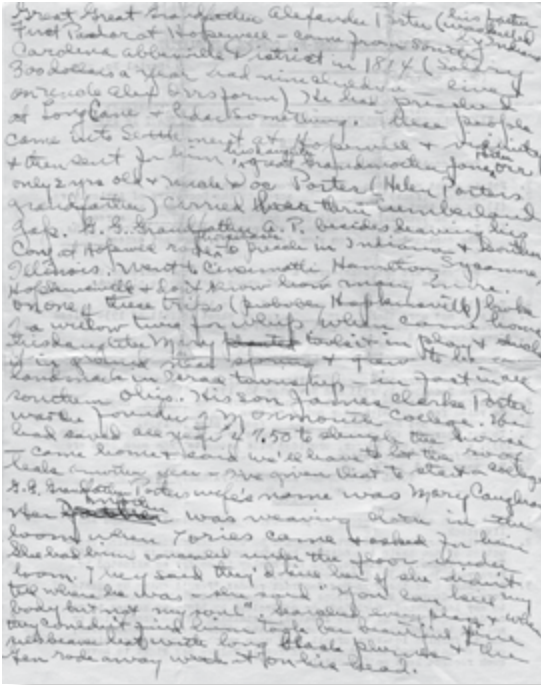 Great Great Grandfather Alexander Porter (his father
First Pastor at Hopewell - came from South
Carolina Abbeville District in 1814 (Salary
300 dollars a year had nine children
He had preached
at Long Cane & Cedar something. These people
came into Settlement at Hopewell & vicinity
& then sent for him. his daughter great Grandmother Jane
only 2 yrs old & Uncle Doc Porter (Helen Porters
grandfather) carried her thru Cumberland
Gap. G. G. Grandfather A. P. besides leaving his
Cong at Hopewell rode horseback to preach in Indiana & Southern
Illinois. Went to Cincinnati Hamilton Sycamore,
Hopkinsville & don't know how many more.
On one of these trips (probably Hopkinsville) broke
a willow twig for whip when came home
his daughter Mary took it in play & stuck
it in ground & grew to be a
landmark in township - in
southern Ohio. His son James Clarke Porter
was the founder of Monmouth College. He
had saved up $7.50 to shingle the house
came home & said we'll have to let the roof
leak another year - I've given that to start a college
G. G. Grandfather Porters wife's name was Mary Caughran
Her brother was weaving cloth in the
loom when Tories came & asked for him
She had him concealed under the floor under
loom. They said they'd kill her if she didn't
tell where he was - she said "You can have my
body but not my soul" searched every place & when
they couldn't find him took her beautiful fine
new beaver hat with long black plumes & then
rode away with it on his head.